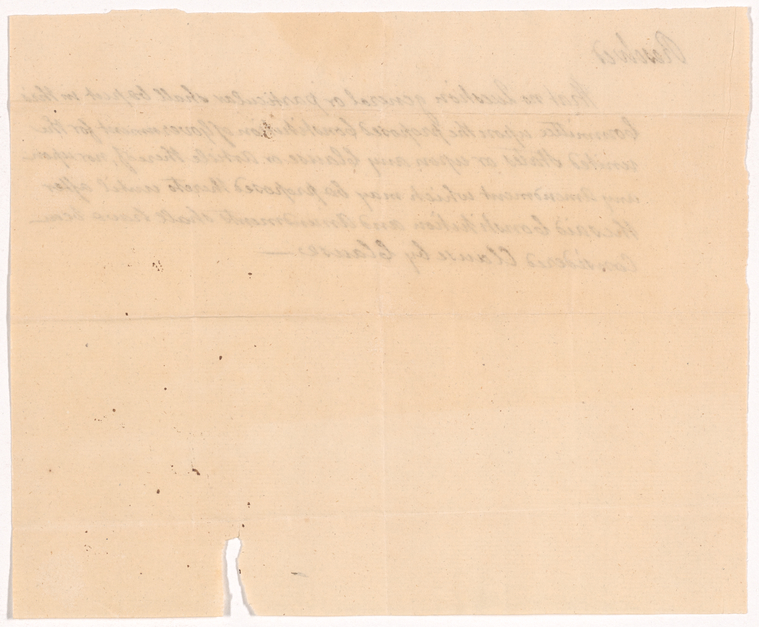 Resolved
that no Question general or particular shall be put in this
Committee upon the proposed Constitution of Government for the
united States or upon any Clause or Article thereof nor upon
any amendment which may be proposed thereto until after
the said Constitution and Amendments shall have been
Considered Clause by Clause.—